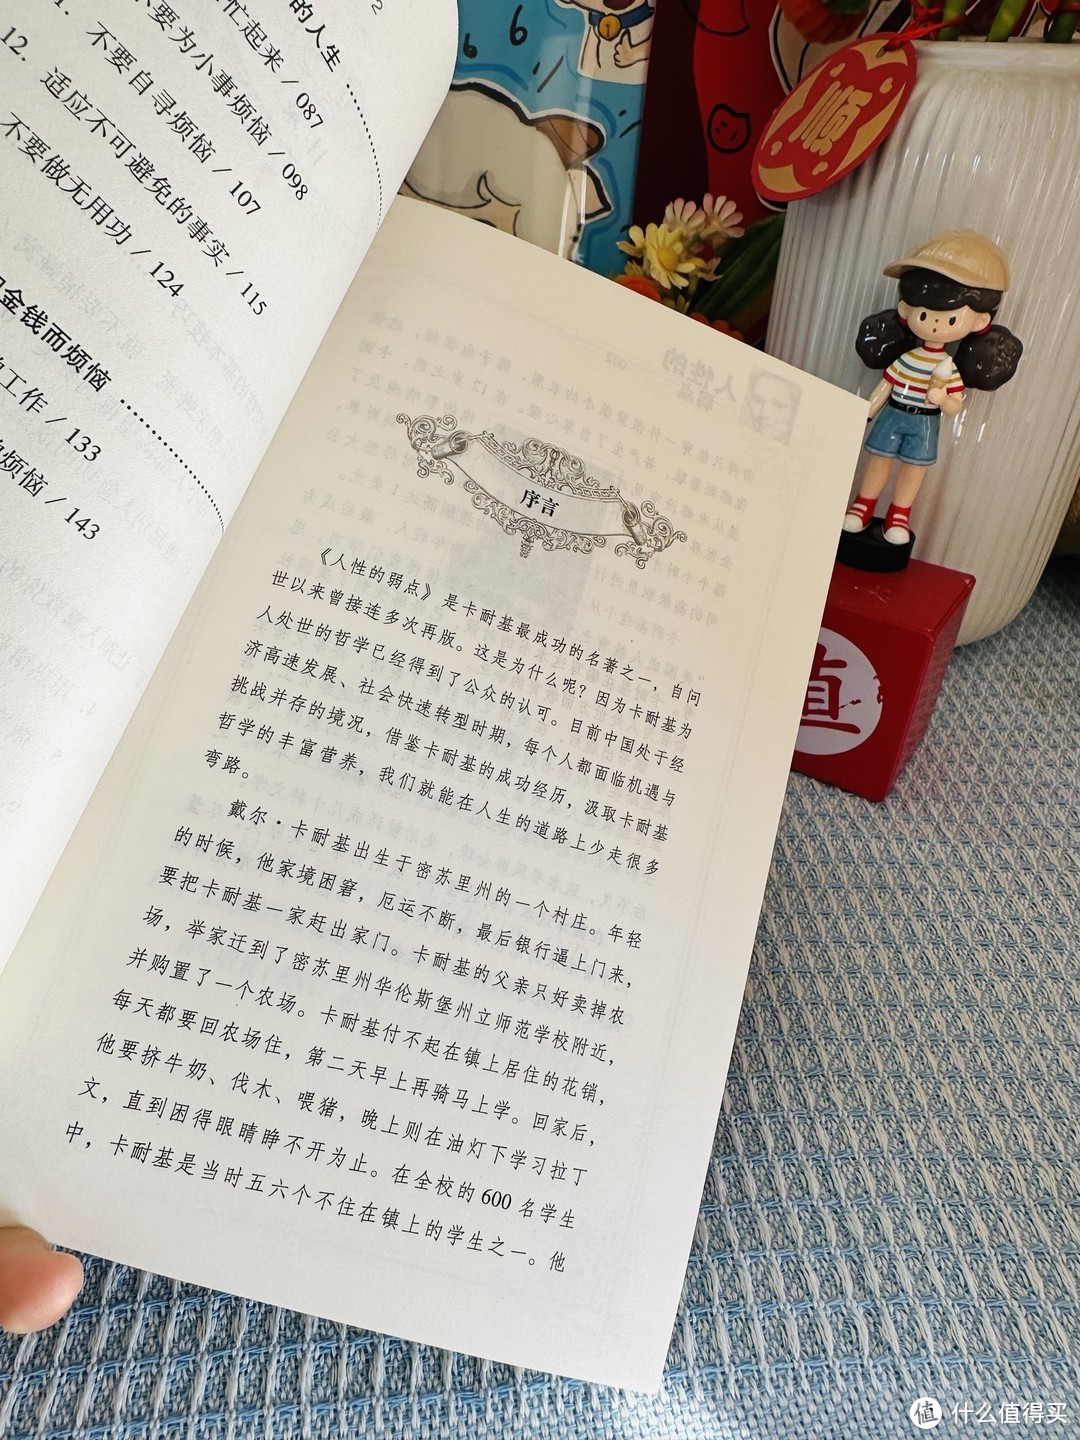 的人生
忙起来 / 087
不要为小事烦恼 / 098
不要自寻烦恼 / 107
12. 适应不可避免的事实 / 115
不要做无用功 / 124
金钱而烦恼
工作 / 133
烦恼 / 143
序言
《人性的弱点》是卡耐基最成功的名著之一，自问
世以来曾接连多次再版。这是为什么呢？因为卡耐基为
人处世的哲学已经得到了公众的认可。目前中国处于经
济高速发展、社会快速转型时期，每个人都面临机遇与
挑战并存的境况，借鉴卡耐基的成功经历，汲取卡耐基
哲学的丰富营养，我们就能在人生的道路上少走很多
弯路。
戴尔·卡耐基出生于密苏里州的一个村庄。年轻
的时候，他家境困窘，厄运不断，最后银行逼上门来，
要把卡耐基一家赶出家门。卡耐基的父亲只好卖掉农
场，举家迁到了密苏里州华伦斯堡州立师范学校附近，
并购置了一个农场。卡耐基付不起在镇上居住的花销，
每天都要回农场住，第二天早上再骑马上学。回家后，
他要挤牛奶、伐木、喂猪，晚上则在油灯下学习拉丁
文，直到困得眼睛睁不开为止。在全校的 600 名学生
中，卡耐基是当时五六个不住在镇上的学生之一。他
顺
值
值 什么值得买